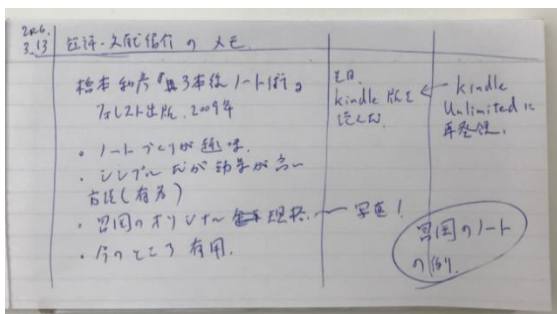 2026.
3.13
短評・文献紹介のメモ.
橋本和彦『3本線ノート術』
フォレスト出版. 2009年
・ノートづくりが趣味.
・シンプルだが効果が高い
方法(有名)
・宮岡のオリジナル 規格.
・今のところ有用.
先日.
kindle 版を
読んだ
← kindle
Unlimited に
再登録.
写真!
宮岡のノート
の例.